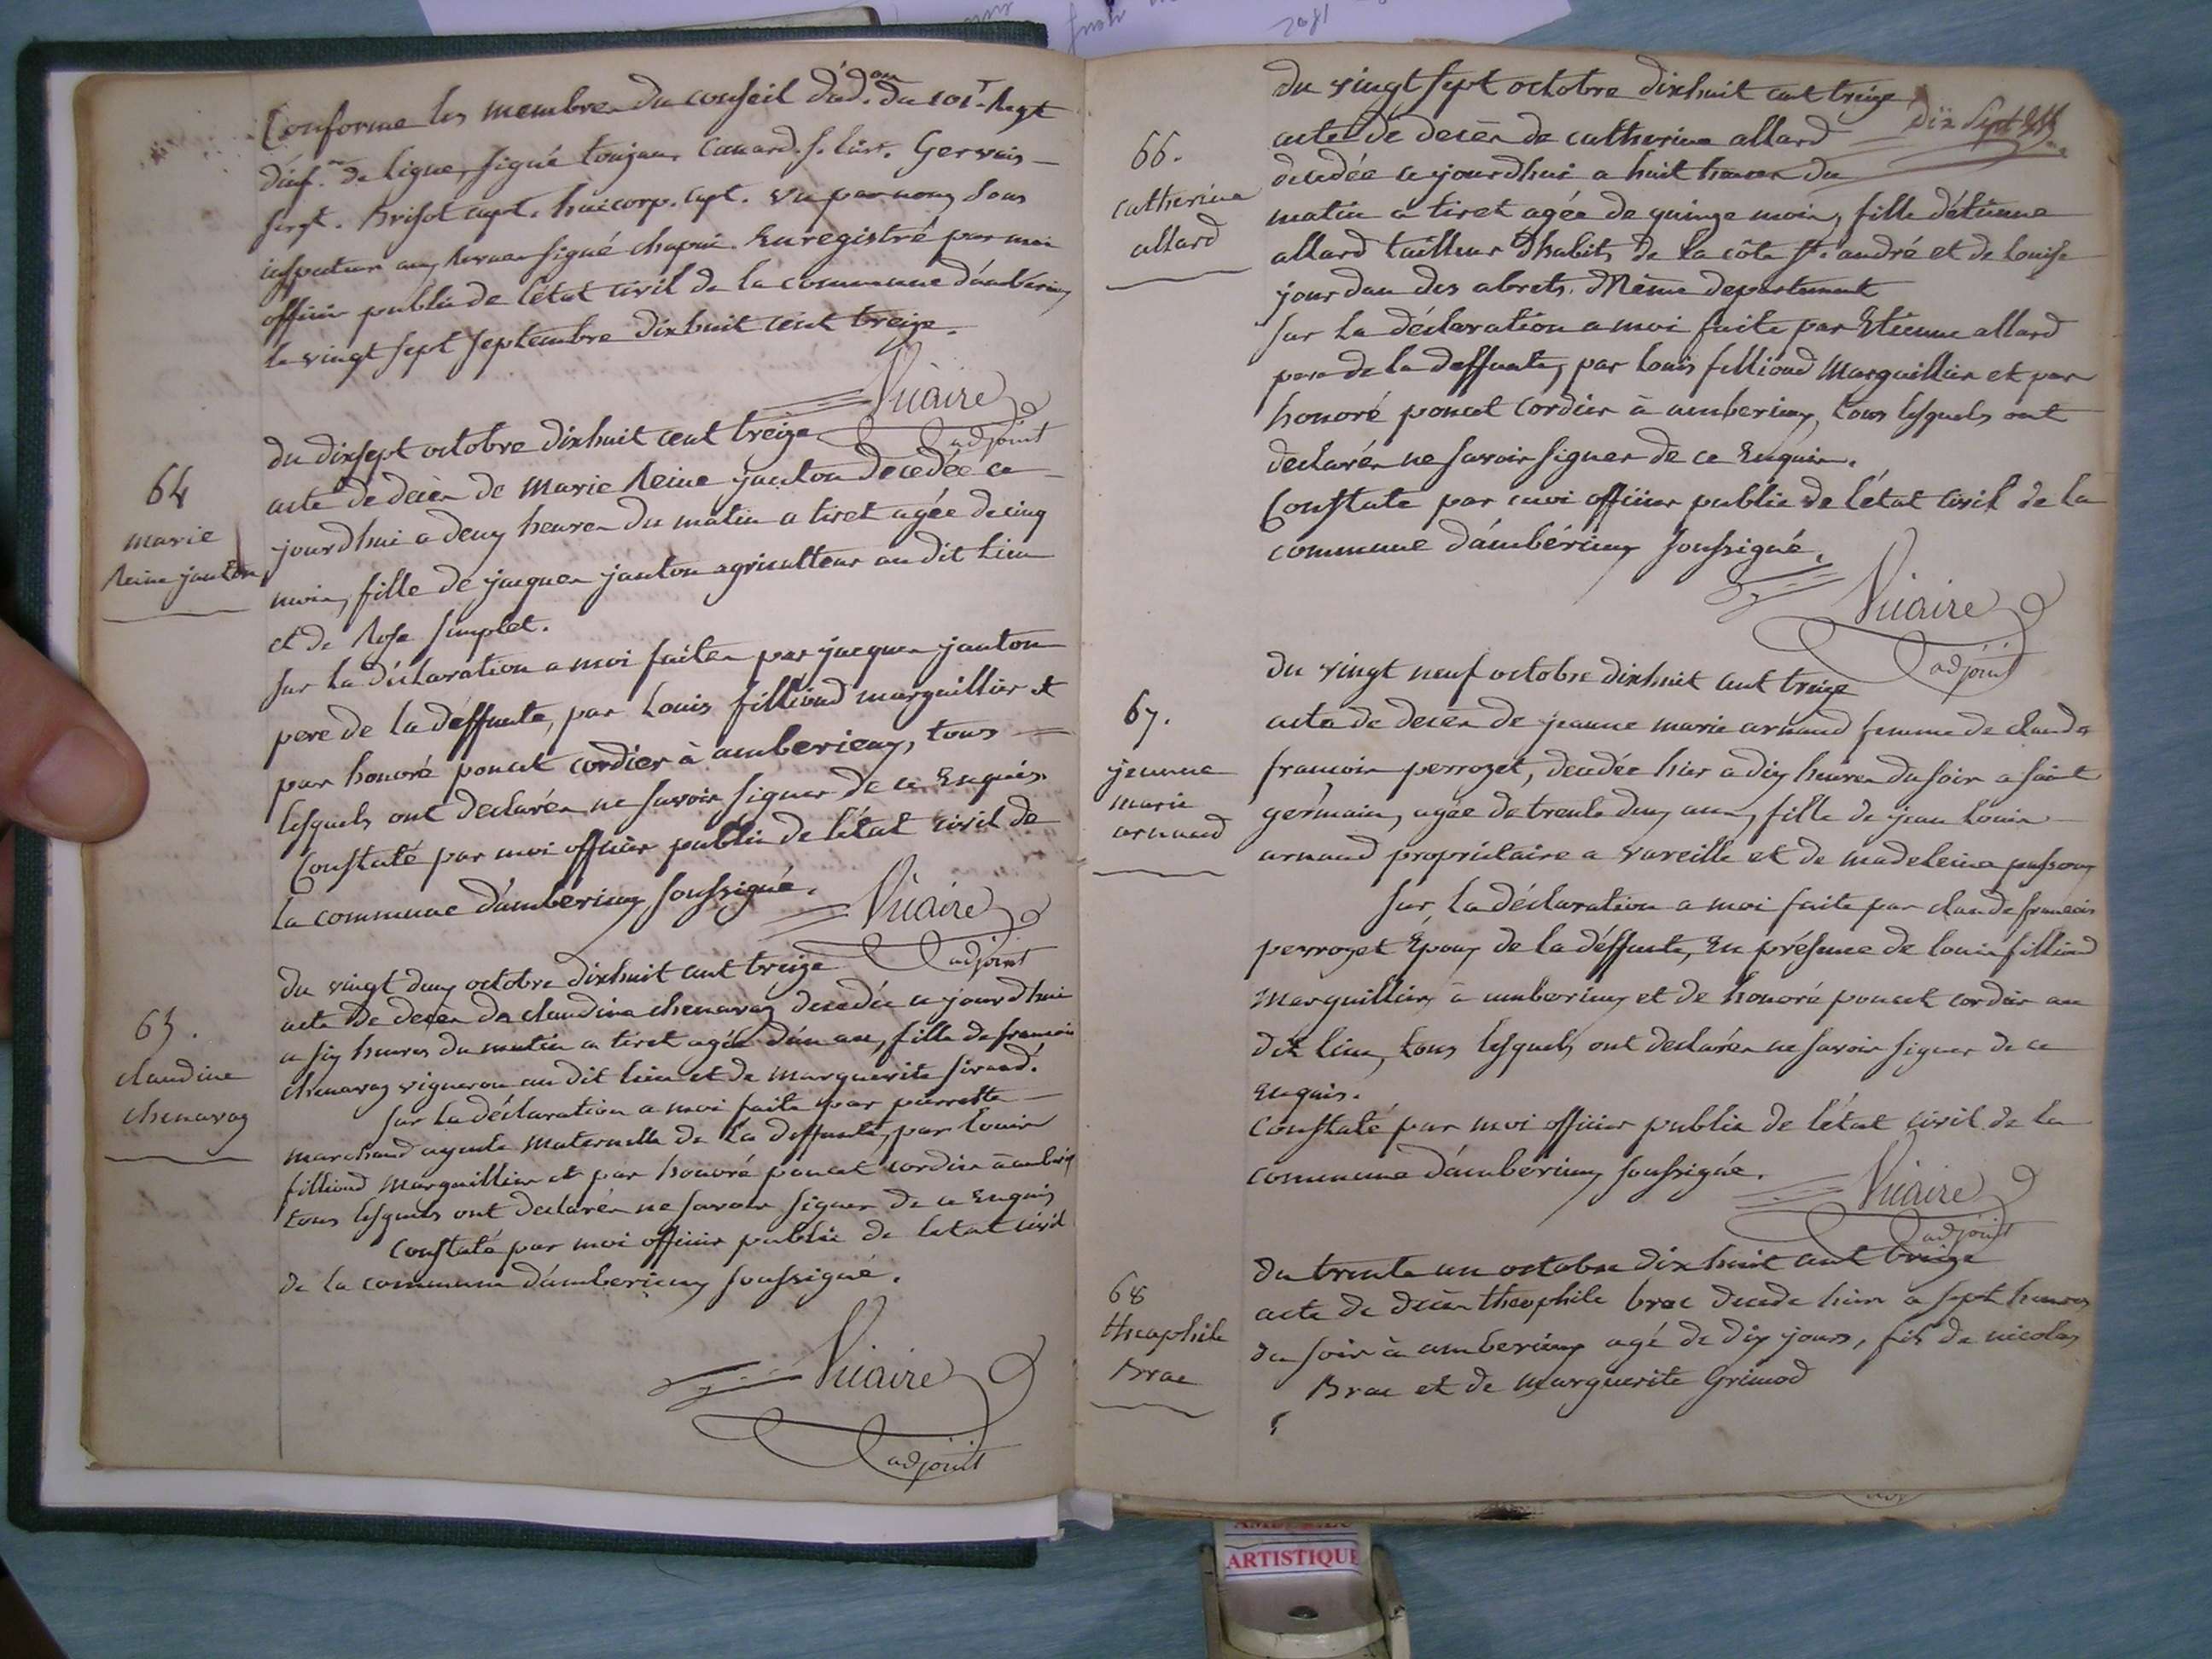 Conforme les membres du conseil d'ad.on du 101e Regt
d'inf.rie de ligne, signé toujan, Canard. s. lieut. Gervais
sergt. Brisot capt. capt. Vu par nous sous
inspecteur aux revues signé chapui. Enregistré par moi
officier public de l'état civil de la commune d'ambérieux
le vingt sept septembre dixhuit cent treize.
Vicaire
adjoint
64
marie
Reine janton
du dixsept octobre dixhuit cent treize
acte de decès de Marie Reine janton decedée ce
jourdhui a deux heures du matin a tiret agée de cinq
mois, fille de jacques janton agriculteur au dit lieu
et de Rose Simplet.
sur la déclaration a moi faites par jacques janton
pere de la déffunte, par Louis fillioud marguillier et
par honoré poncet cordier à amberieux, tous
lesquels ont declarés ne savoir signer de ce Enquis
Constaté par moi officier public de l'état civil de
la commune d'amberieux soussigné.
Vicaire
adjoint
65.
claudine
chenavaz
du vingt deux octobre dixhuit cent treize
acte de deces de claudine chenavaz decedée ce jourdhui
a six heures du matin a tiret agée d'un an, fille de francois
chenavaz vigneron au dit lieu et de marguerite siraud.
sur la déclaration a moi faite par pierrette
marchand ayeule maternelle de la deffunte, par louis
fillioud marguillier et par honoré poncet cordier à amberieux
tous lesquels ont declarés ne savoir signer de ce Enquis
Constaté par moi officier public de letat civil
de la commune d'amberieux soussigné.
Vicaire
adjoint
Dix Sept
66.
catherine
allard
du vingt sept octobre dixhuit cent treize
acte de decès de catherine allard
decedée ce jourdhui a huit heures du
matin a tiret agée de quinze mois, fille d'étienne
allard tailleur d'habits de la côte st. andré et de louise
jourdan des abrets. Même departement
sur la déclaration a moi faite par Etienne allard
pere de la deffunte, par louis fillioud Marguillier et par
honoré poncet cordier à amberieux, tous lesquels ont
declarés ne savoir signer de ce Enquis.
Constaté par moi officier public de l'état civil de la
commune d'ambérieux soussigné.
Vicaire
adjoint
67.
jeanne
marie
arnaud
du vingt neuf octobre dixhuit cent treize
acte de decès de jeanne marie arnaud femme de claude
francois perrozet, decedée hier a dix heures du soir a saint
germain, agée de trente deux ans, fille de jean louis
arnaud propriétaire a vareille et de madeleine
sur la déclaration a moi faite par claude francois
perrozet Epoux de la déffunte, En présence de louis fillioud
Marguillier à amberieux et de honoré poncet cordier au
dit lieu, tous lesquels ont declarés ne savoir signer de ce
Enquis.
Constaté par moi officier public de l'état civil de la
commune d'amberieux soussigné.
Vicaire
adjoint
68
theophile
Brac
du trente un octobre dixhuit cent treize
acte de decès theophile brac decede hier a sept heures
du soir à amberieux agé de dix jours, fils de nicolas
Brac et de marguerite Grimod
ARTISTIQUE